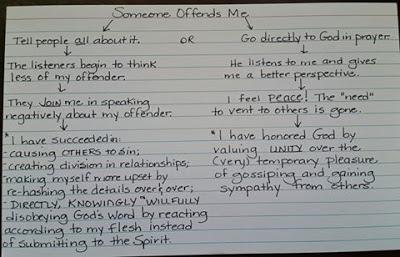 Someone Offends Me
Tell people all about it.
OR
Go directly to God in prayer.
The listeners begin to think
less of my offender.
He listens to me and gives
me a better perspective.
They JOIN me in speaking
negatively about my offender.
I feel peace! The "need"
to vent to others is gone.
*I have succeeded in:
-causing OTHERS to sin;
-creating division in relationships;
-making myself more upset by
re-hashing the details over & over;
-DIRECTLY, KNOWINGLY & WILLFULLY
disobeying God's Word by reacting
according to my flesh instead
of submitting to the Spirit.
*I have honored God by
valuing UNITY over the
(very) temporary pleasure
of gossiping and gaining
sympathy from others.